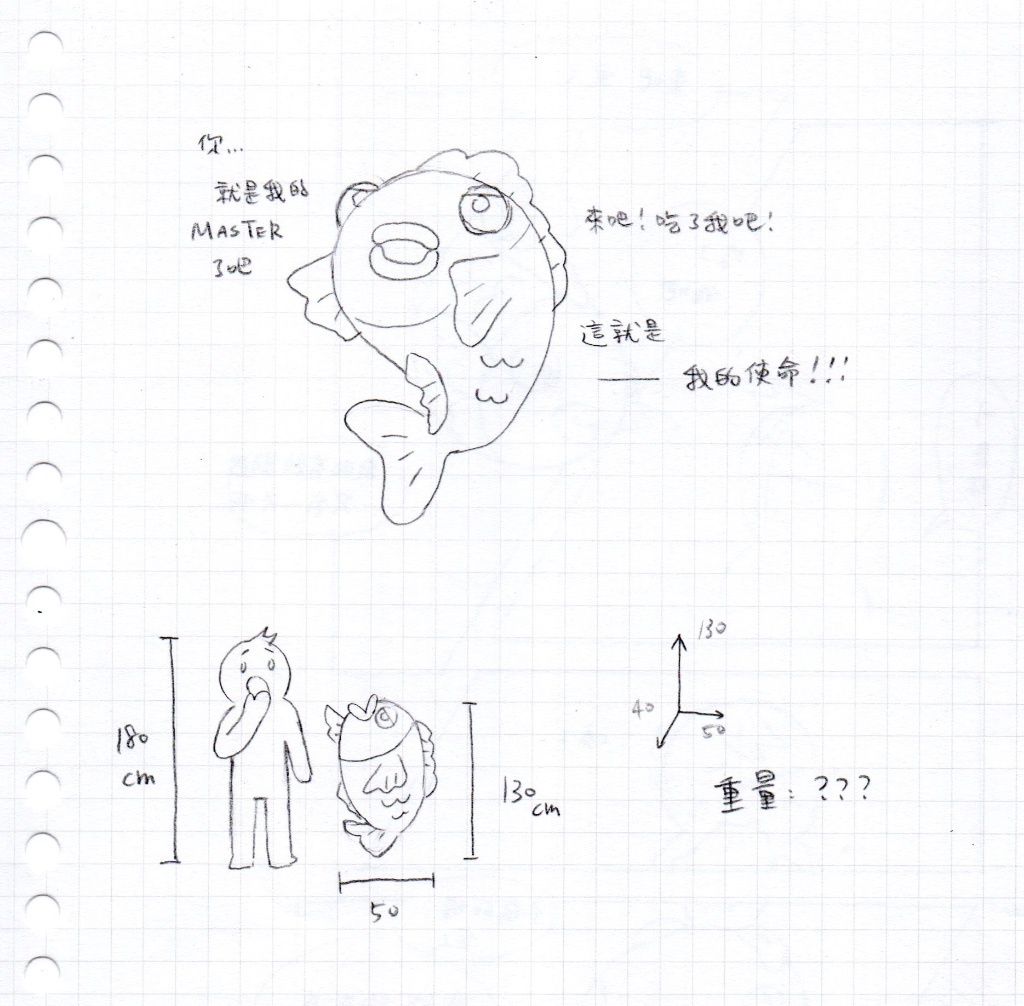 你...
就是我的
MASTER
了吧
來吧！吃了我吧！
這就是
—— 我的使命!!!
180
cm
130
cm
50
130
40
50
重量：???